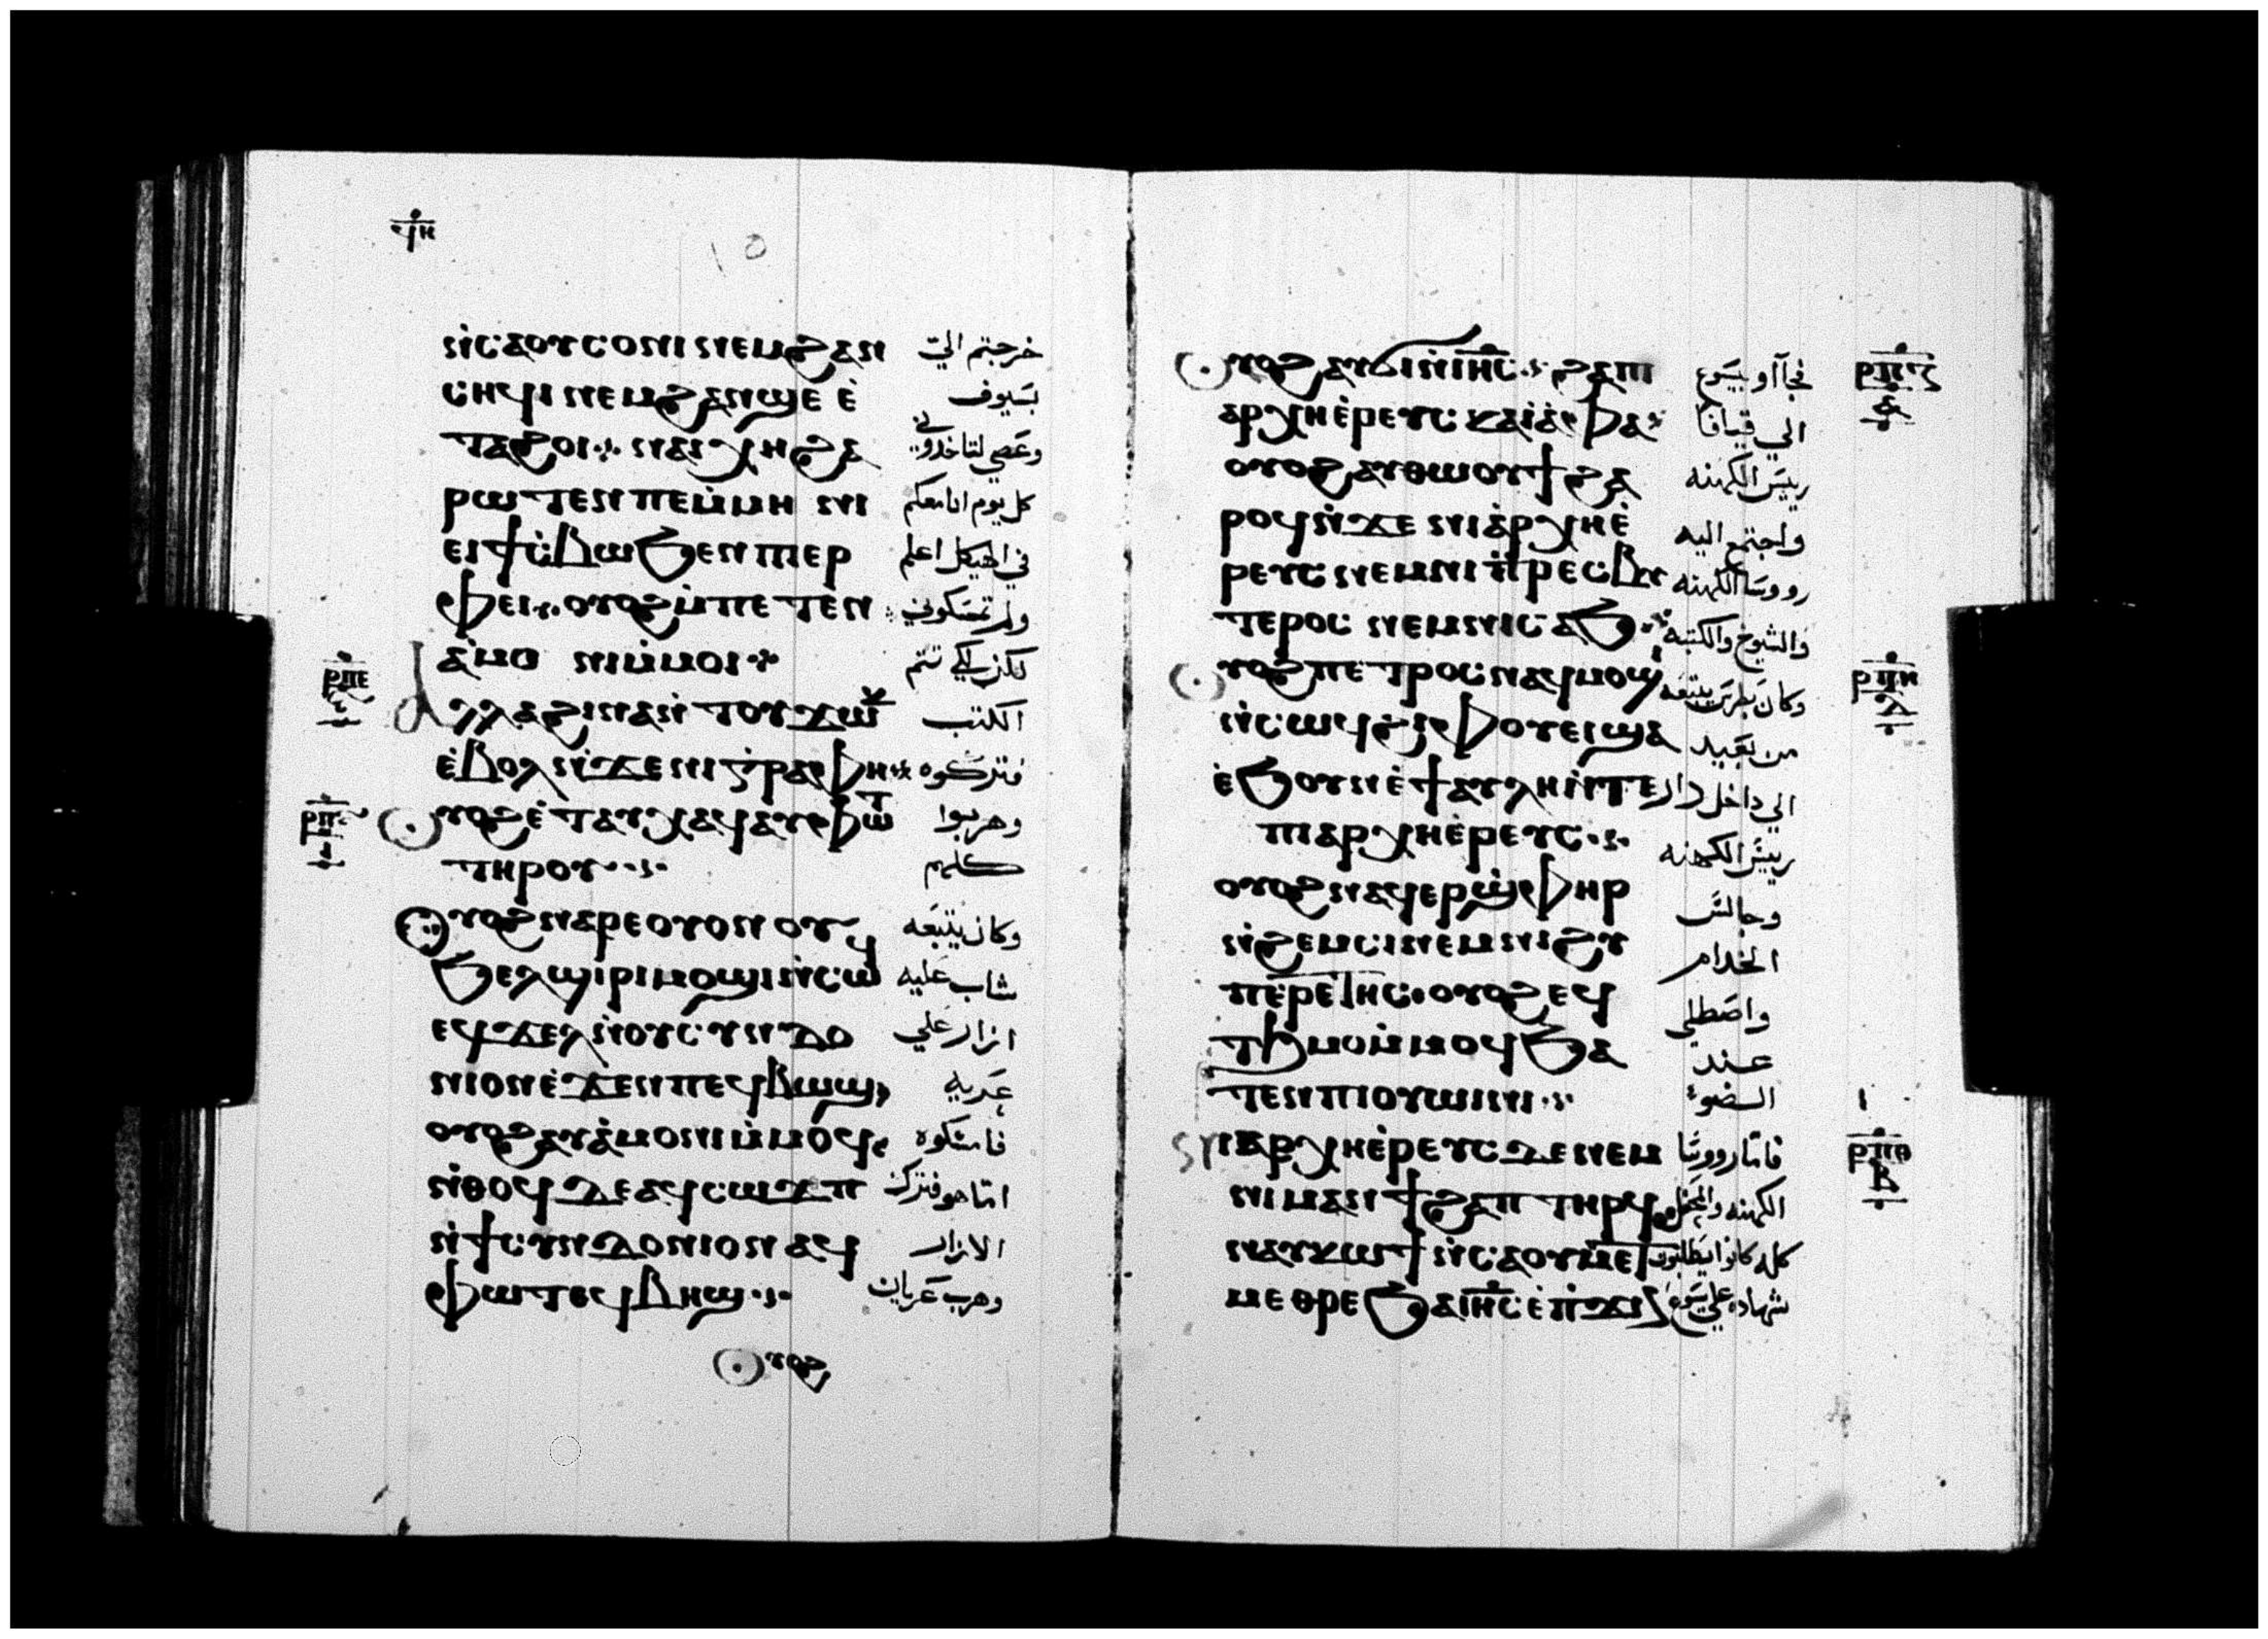 ϥⲏ
ⲛ̀ⲥⲁⲟⲩⲥⲟⲛⲓ ⲛⲉⲙϩⲁⲛ خرجتم الي
ⲥⲏϥⲓ ⲛⲉⲙϩⲁⲛϣⲉ ⲉ̀ بسيوف
ⲧⲁϩⲟⲓ ⲛⲁⲓⲭⲏ ϩⲁ وعصي لتاخذوني
ⲣⲱⲧⲉⲛ ⲡⲉ ⲙ̀ⲙⲏⲛⲓ كل يوم انا معكم
ⲉⲓϯⲥ̀ⲃⲱ ϧⲉⲛ ⲡⲓⲉⲣ في الهيكل اعلم
ⲫⲉⲓ ⲟⲩⲟϩ ⲙ̀ⲡⲉⲧⲉⲛ ولم تمسكوني
ⲁ̀ⲙⲟⲛⲓ ⲙ̀ⲙⲟⲓ لكن لكي تتم
ⲣⲡⲉ
ⲁⲗⲗⲁ ϩⲓⲛⲁ ⲛ̀ⲧⲟⲩϫⲱⲕ الكتب
ⲉ̀ⲃⲟⲗ ⲛ̀ϫⲉ ⲛⲓⲅ̀ⲣⲁⲫⲏ فتركوه
ⲣⲡⲋ
ⲟⲩⲟϩ ⲉ̀ⲧⲁⲩⲭⲁϥ ⲁⲩⲫⲱⲧ وهربوا
ⲧⲏⲣⲟⲩ كلهم
ⲟⲩⲟϩ ⲛⲁⲣⲉ ⲟⲩⲟⲛ ⲟⲩ وكان يتبعه
ϧⲉⲗϣⲓⲣⲓ ⲙⲟϣⲓ ⲛ̀ⲥⲱϥ شاب عليه
ⲉϥϫⲉⲗ ⲛ̀ⲟⲩⲥⲩⲛⲇⲟ ازار علي
ⲛⲓⲟⲛ ⲉ̀ϫⲉⲛ ⲡⲉϥⲃⲱϣ عريه
ⲟⲩⲟϩ ⲁⲩⲁ̀ⲙⲟⲛⲓ ⲙ̀ⲙⲟϥ فامسكوه
ⲛ̀ⲑⲟϥ ⲇⲉ ⲁϥⲥⲱϫⲡ اما هو فترك
ⲛ̀ϯⲥⲩⲛⲇⲟⲛⲓⲟⲛ ⲁϥ الازار
ⲫⲱⲧ ⲉϥⲃⲏϣ وهرب عريان
ⲟⲩⲟϩ
ⲟⲩⲟϩ ⲁⲩⲓⲛⲓ ⲛ̀ⲓⲏⲥ ϩⲁ ⲡⲓ فجآاو بيسوع
ⲣⲡⲍ
ⲁ
ⲁⲣⲭⲏⲉ̀ⲣⲉⲩⲥ ⲕⲁⲓⲁ̀ⲫⲁ الي قيافا
ⲟⲩⲟϩ ⲁⲩⲑⲱⲟⲩϯ ϩⲁ رييس الكهنه
ⲣⲟϥ ⲛ̀ϫⲉ ⲛⲓⲁ̀ⲣⲭⲏⲉ̀ واجتمع اليه
ⲣⲉⲩⲥ ⲛⲉⲙ ⲛⲓⲡ̀ⲣⲉⲥⲃⲩ رووسا الكهنه
ⲧⲉⲣⲟⲥ ⲛⲉⲙ ⲛⲓⲥⲁϧ والشيوخ والكتبه
ⲟⲩⲟϩ ⲡⲉⲧⲣⲟⲥ ⲛⲁϥⲙⲟϣⲓ وكان بطرس يتبعه
ⲣⲡⲏ
ⲇ
ⲛ̀ⲥⲱϥ ϩⲓⲫⲟⲩⲉⲓ ϣⲁ من بعيد
ⲉ̀ϧⲟⲩⲛ ⲉ̀ϯⲁⲩⲗⲏ ⲛ̀ⲧⲉ الي داخل دار
ⲡⲓⲁⲣⲭⲏⲉ̀ⲣⲉⲩⲥ رييس الكهنه
ⲟⲩⲟϩ ⲛⲁϥⲉⲣϣ̀ⲫⲏⲣ وجالس
ⲛ̀ϩⲉⲙⲥⲓ ⲛⲉⲙ ⲛⲓϩⲩ الخدام
ⲡⲉⲣⲉⲧⲏⲥ ⲟⲩⲟϩ ⲉϥ واصطلي
ⲧϧⲙⲟⲙ ⲙ̀ⲙⲟϥ ϧⲁ عند
ⲧⲉⲛ ⲡⲓⲟⲩⲱⲓⲛⲓ الضوء
ⲛⲓⲁⲣⲭⲏⲉ̀ⲣⲉⲩⲥ ⲇⲉ ⲛⲉⲙ فاما رووسا
ⲣⲡⲑ
ⲃ
ⲛⲓⲙⲁⲛϯϩⲁⲡ ⲧⲏⲣϥ الكهنه والمحفل
ⲛⲁⲩⲕⲱϯ ⲛ̀ⲥⲁ ⲟⲩⲙⲉⲧ كله كانوا يطلبون
ⲙⲉⲑⲣⲉ ϧⲁ ⲓⲏⲥ ⲉ̀ⲡ̀ϫⲓⲛ شهاده علي يسوع